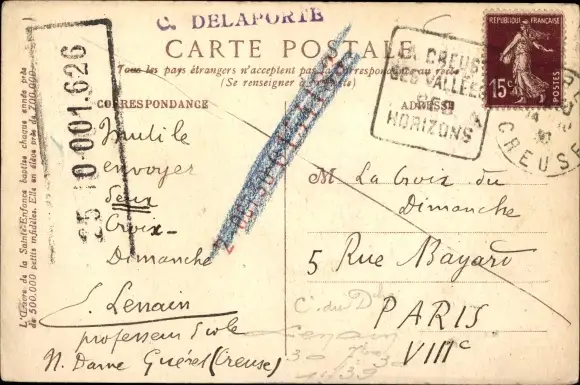 C. DELAPORTE
CARTE POSTALE
Tous les pays étrangers n'acceptent pas la Correspondance au recto
(Se renseigner à la Poste)
CORRESPONDANCE
ADRESSE
RÉPUBLIQUE FRANÇAISE
15c
POSTES
LA CREUSE
SES VALLÉES
SES
HORIZONS
CREUSE
25 10 001.626
L'Œuvre de la Sainte-Enfance baptise chaque année près
de 500.000 petits infidèles. Elle en élève près de 700.000.
Inutile
envoyer
deux
Croix-
Dimanche
E. Lenain
professeur Ecole
N. Dame Guéret (Creuse)
M La Croix du
Dimanche
5 Rue Bayard
PARIS
VIIIe
C. du D
Lenain